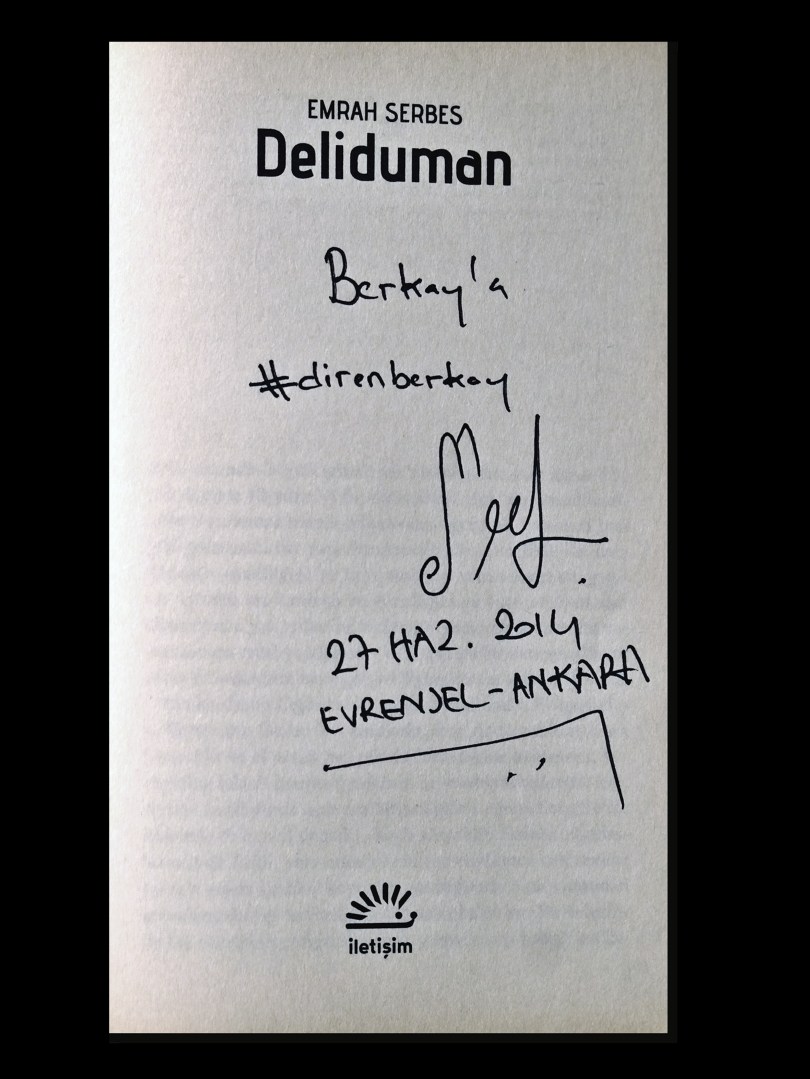 EMRAH SERBES
Deliduman
Berkay'a
#direnberkay
27 HAZ. 2014
EVRENSEL-ANKARA
iletişim